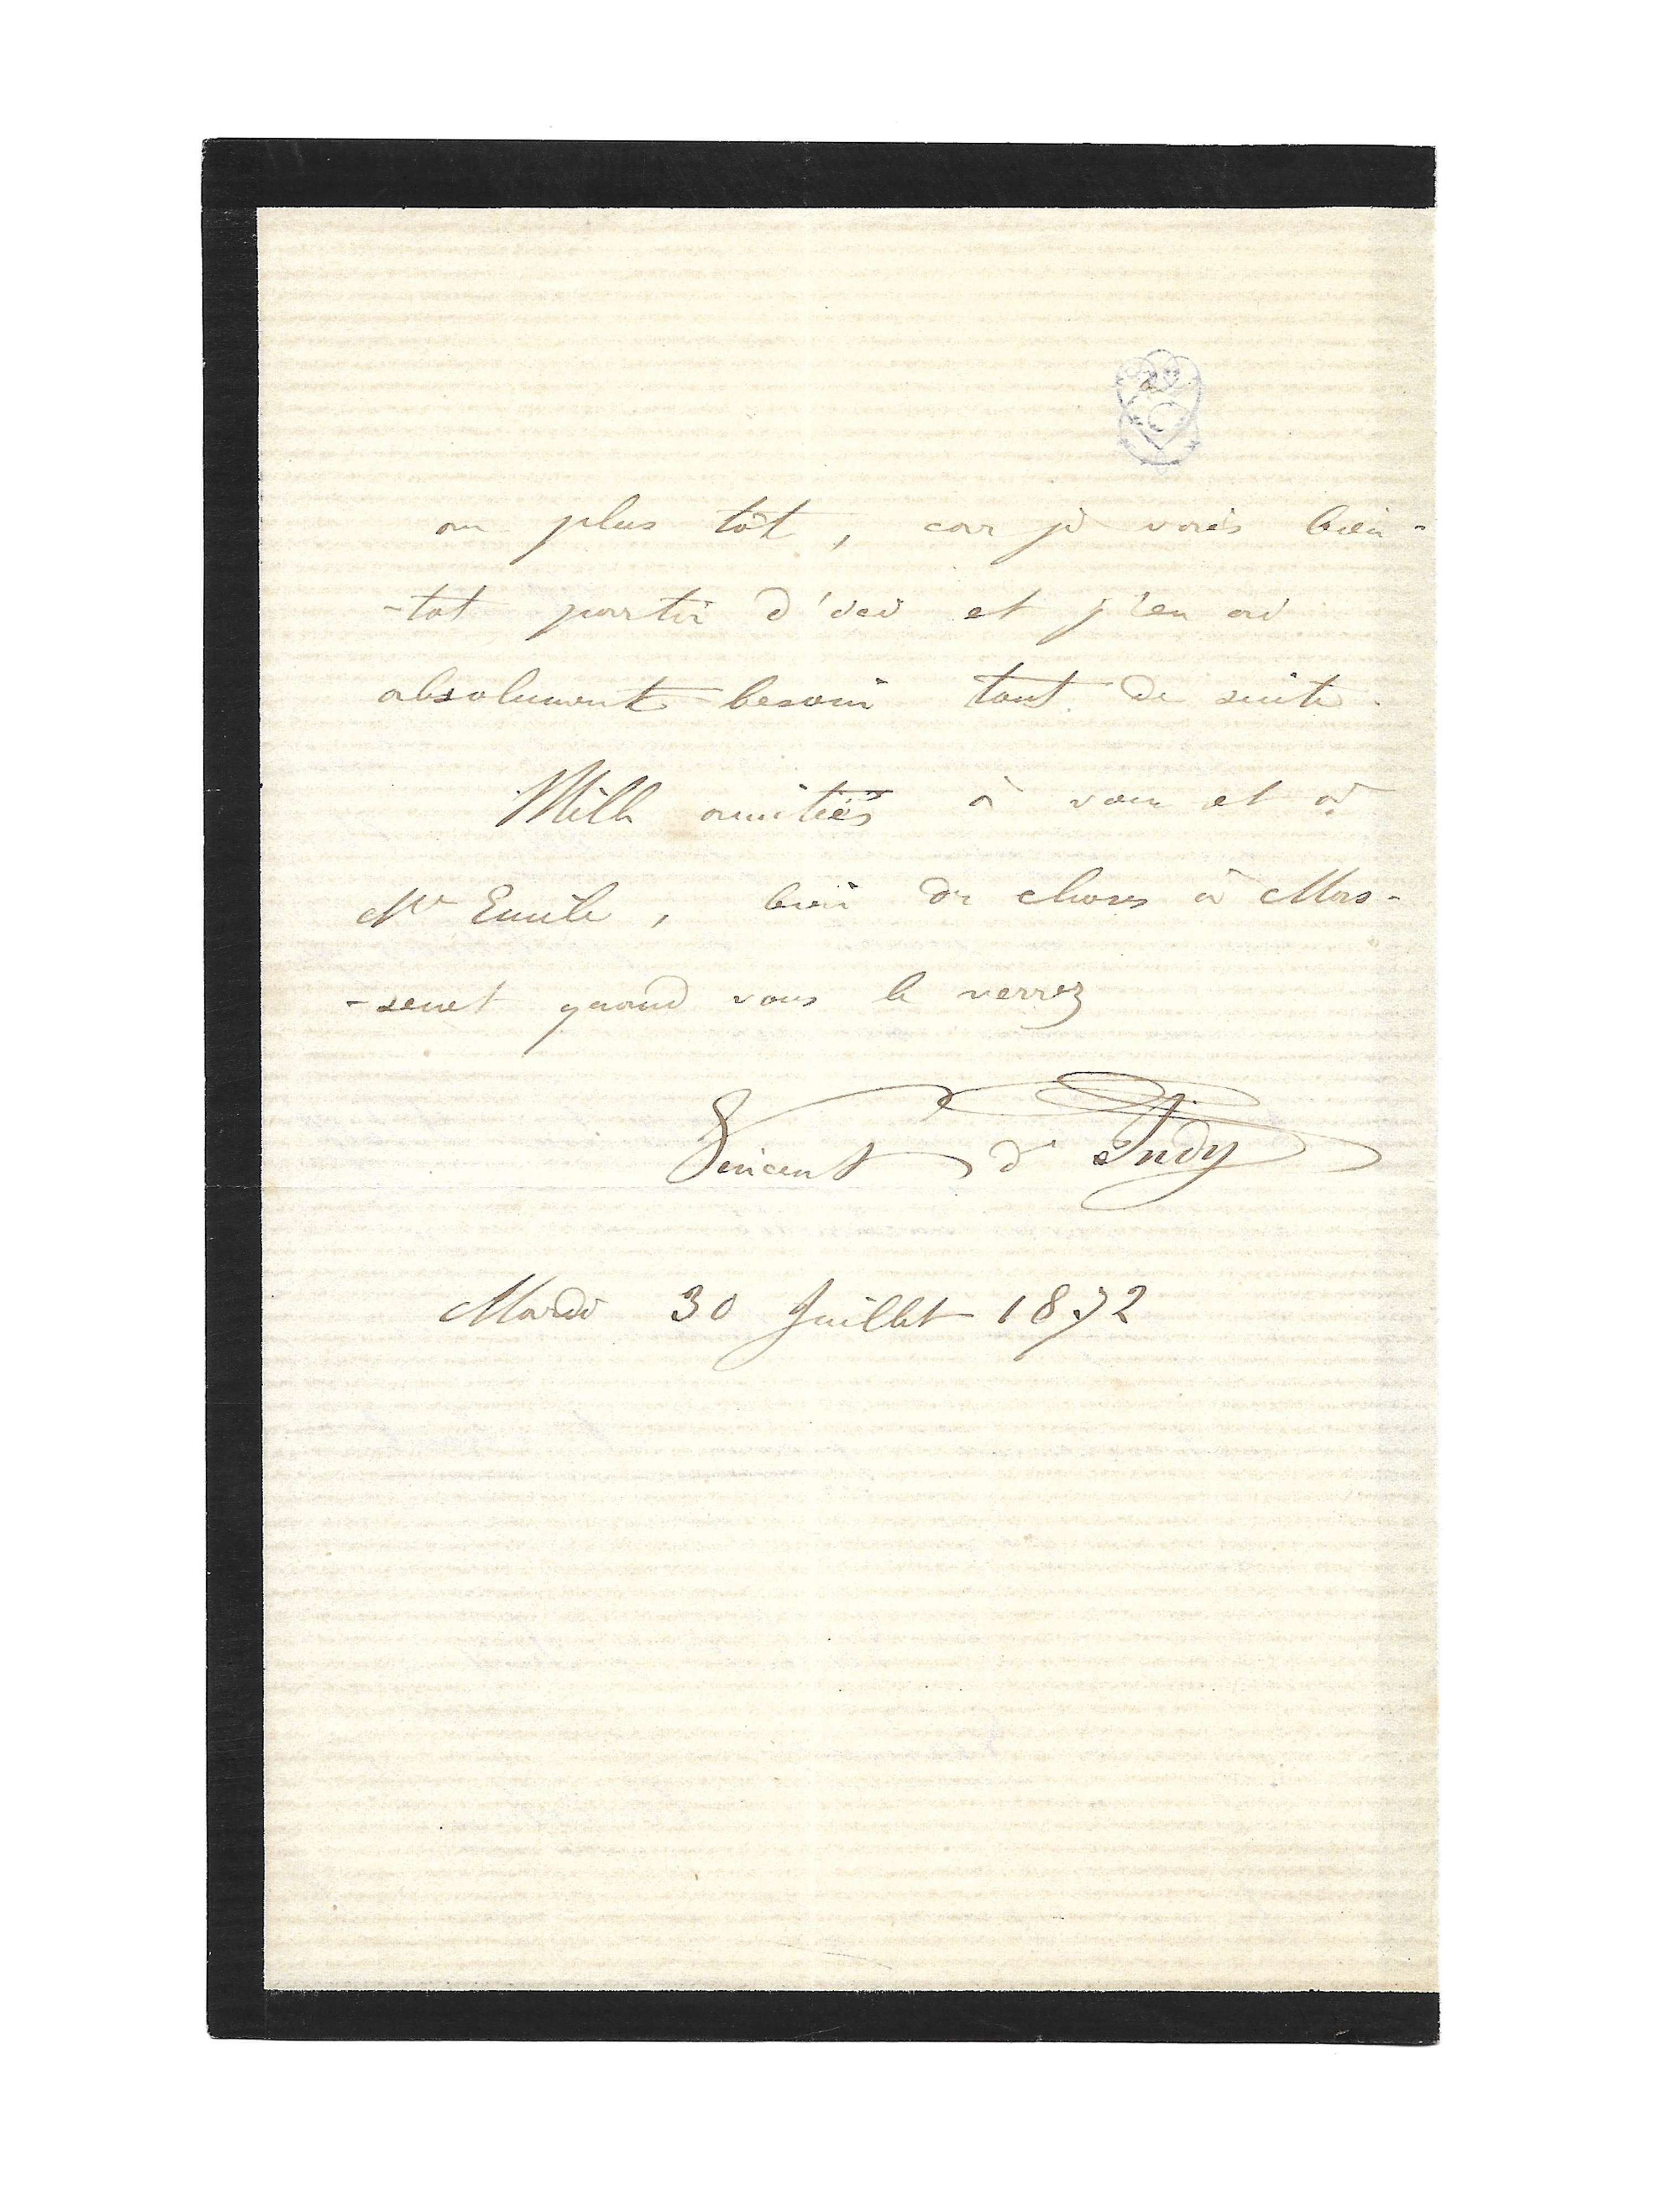 au plus tôt, car je vais bien-
-tot partir d'ici et j'en ai
absolument besoin tout de suite.
Mille amitiés à vous et à
Mr Emile, bien de choses à Mas-
-senet quand vous le verrez
Vincent d'Indy
Mardi 30 Juillet 1872